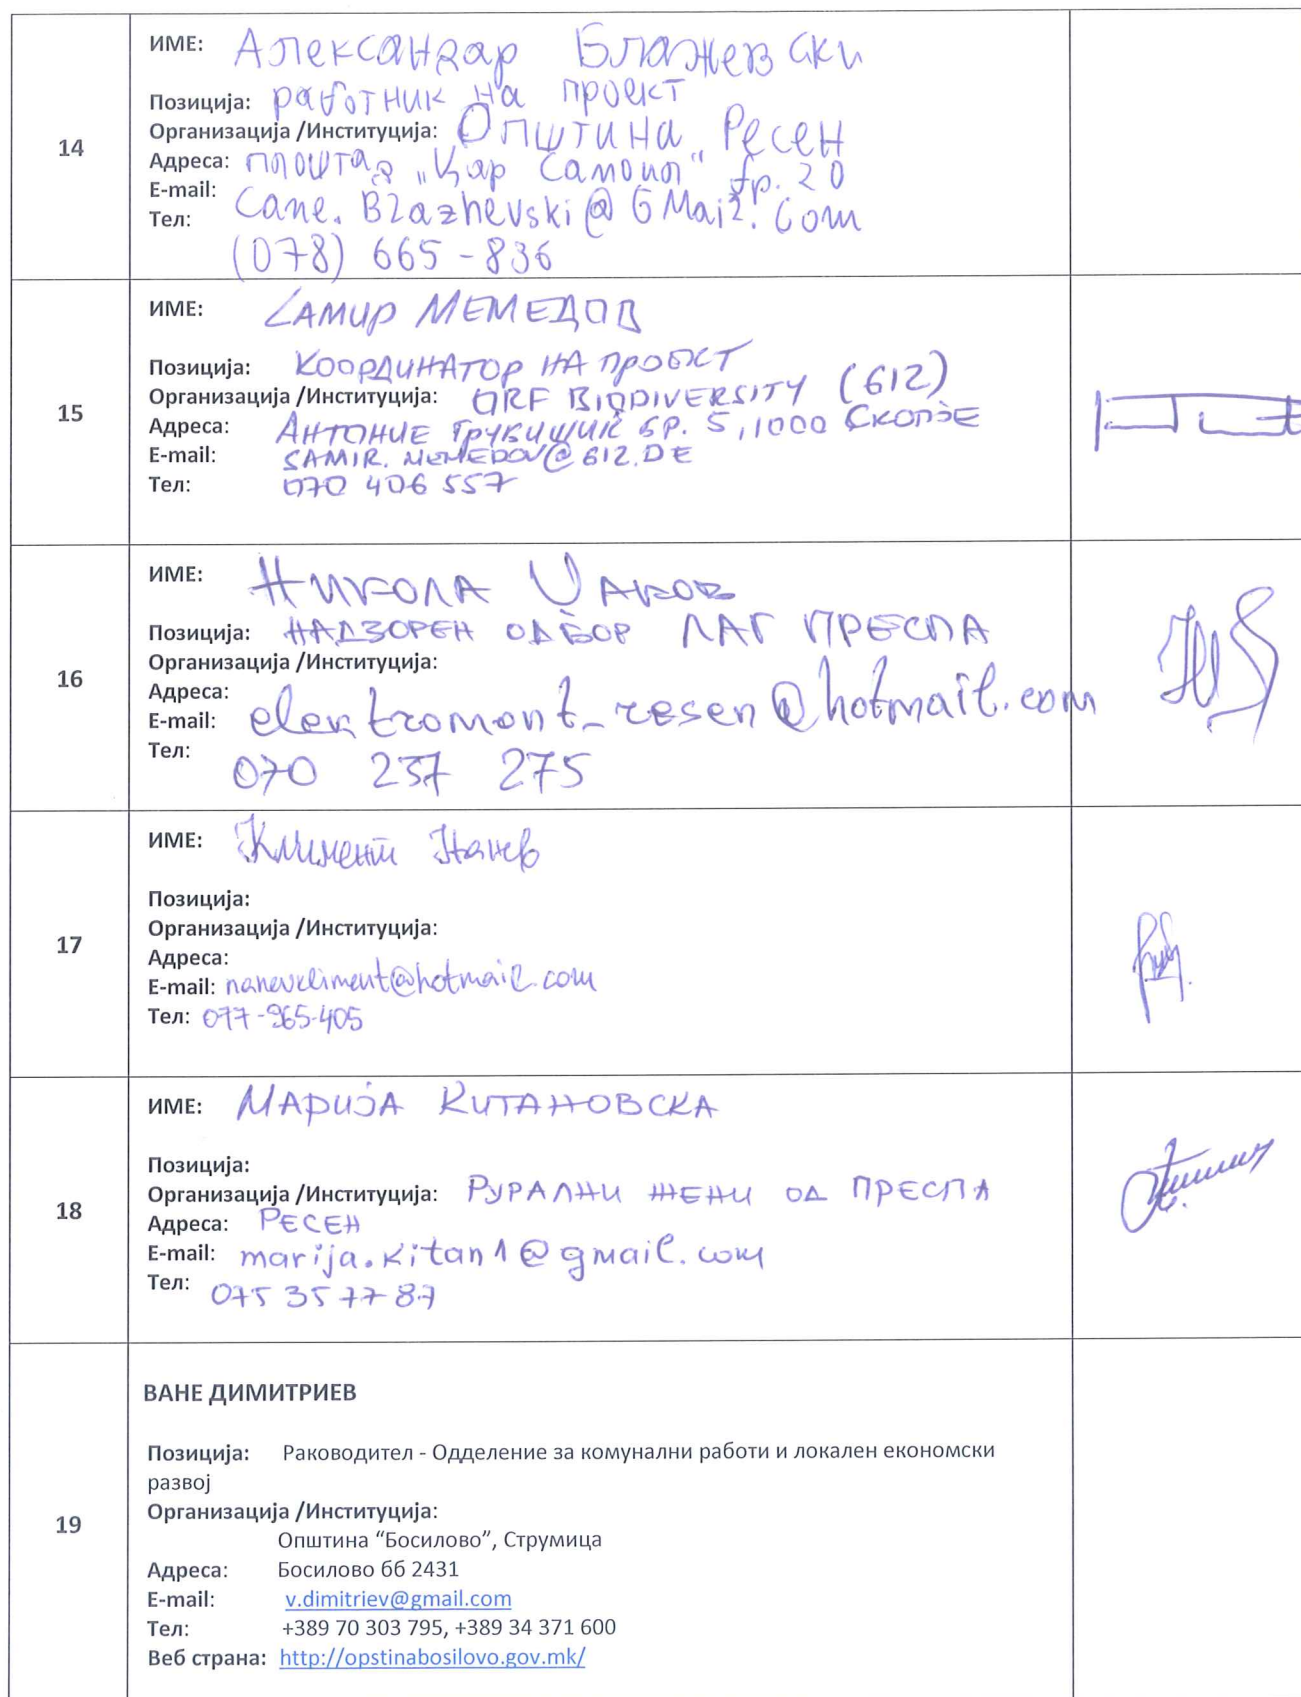 14
ИМЕ: Александар Блажевски
Позиција: работник на проект
Организација /Институција: Општина Ресен
Адреса: плоштад „Цар Самоил" бр. 20
E-mail: Cane.Blazhevski@GMail.Com
Тел: (078) 665-836
15
ИМЕ: САМИР МЕМЕДОВ
Позиција: КООРДИНАТОР НА ПРОЕКТ
Организација /Институција: BIODIVERSITY (GIZ)
Адреса: АНТОНИЕ ГРУБИШИЌ БР. 5, 1000 СКОПЈЕ
E-mail: SAMIR.MEMEDOV@GIZ.DE
Тел: 070 406 557
16
ИМЕ: НИКОЛА
Позиција: НАДЗОРЕН ОДБОР ЛАГ ПРЕСПА
Организација /Институција:
Адреса:
E-mail: elektromont_resen@hotmail.com
Тел: 070 237 275
17
ИМЕ: Климент Нанев
Позиција:
Организација /Институција:
Адреса:
E-mail: nanevkliment@hotmail.com
Тел: 077-965-405
18
ИМЕ: МАРИЈА КИТАНОВСКА
Позиција:
Организација /Институција: РУРАЛНИ ЖЕНИ ОД ПРЕСПА
Адреса: РЕСЕН
E-mail: marija.kitan1@gmail.com
Тел: 075 35 77 87
19
ВАНЕ ДИМИТРИЕВ
Позиција: Раководител - Одделение за комунални работи и локален економски
развој
Организација /Институција:
Општина “Босилово”, Струмица
Адреса: Босилово бб 2431
E-mail: v.dimitriev@gmail.com
Тел: +389 70 303 795, +389 34 371 600
Веб страна: http://opstinabosilovo.gov.mk/